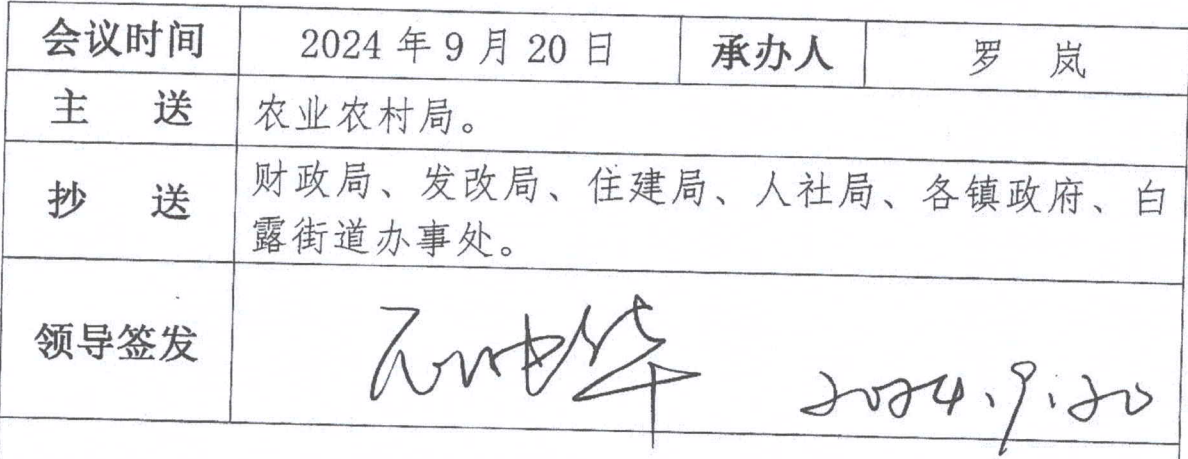 会议时间 2024年9月20日 承办人 罗 岚
主 送 农业农村局。
抄 送 财政局、发改局、住建局、人社局、各镇政府、白
露街道办事处。
领导签发 2024.9.20